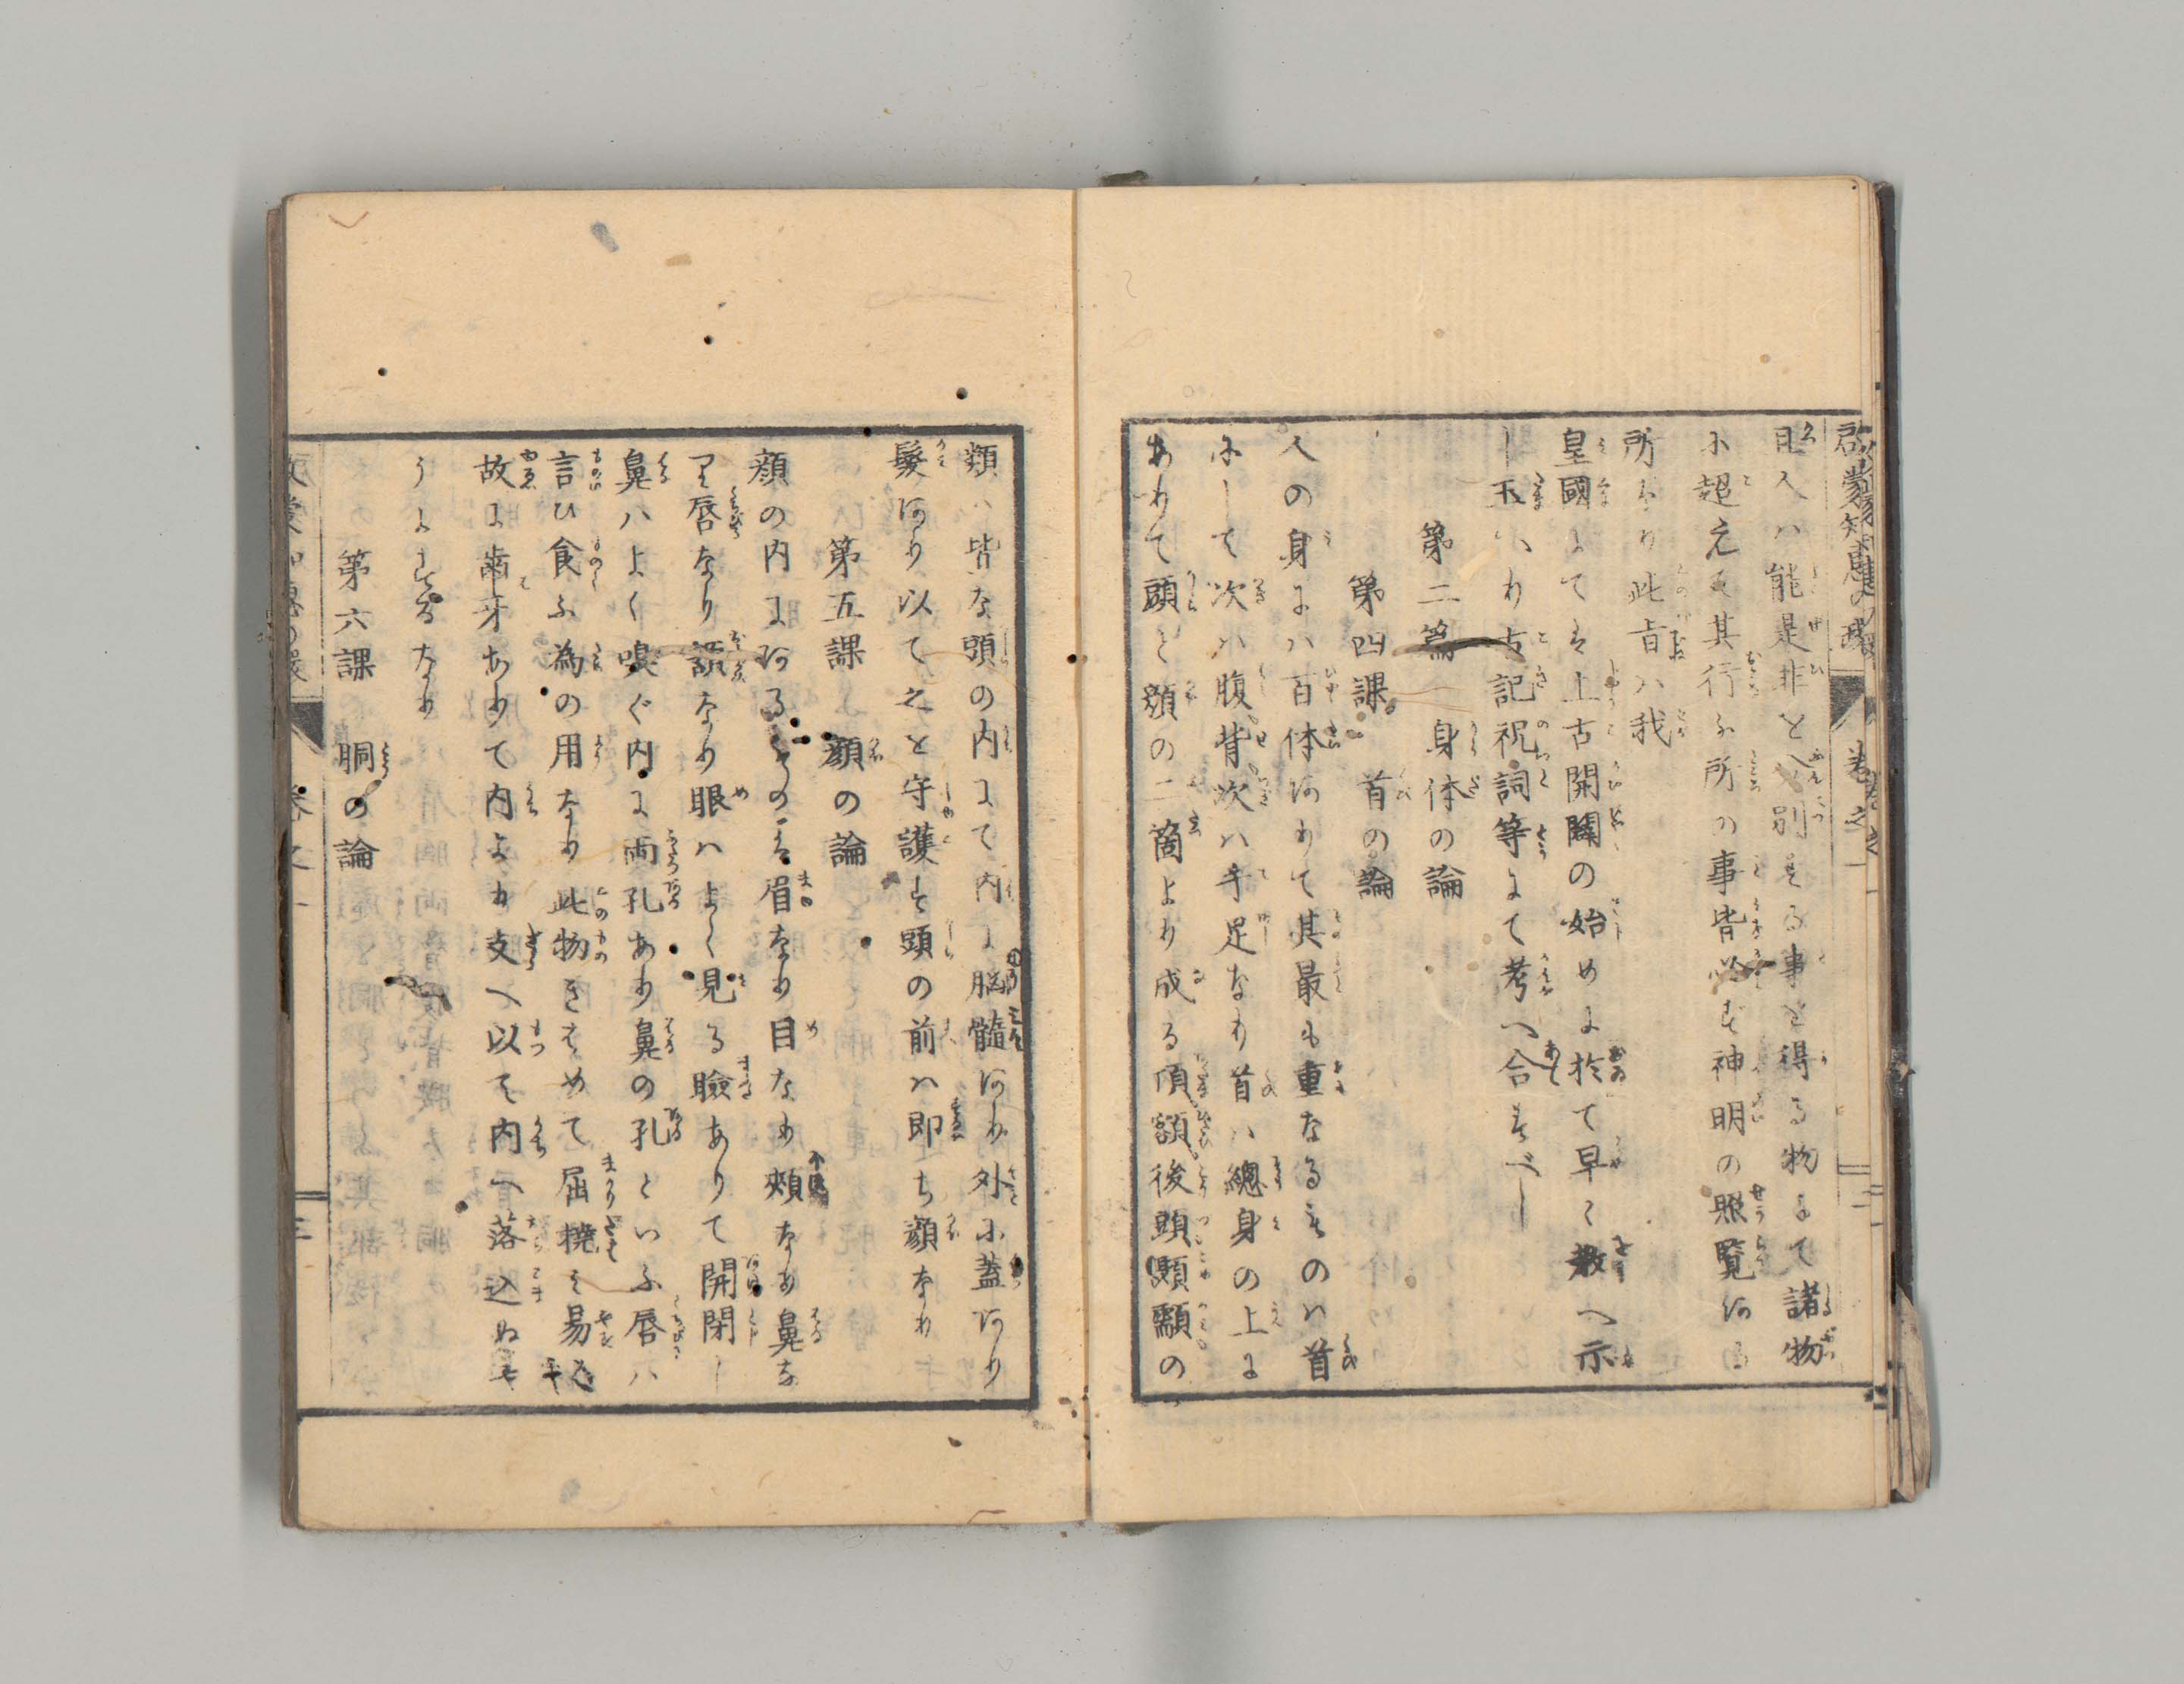 啓蒙知惠の環 卷之一
且人ハ能是非を分別する事を得る物にて諸物
に超え其行ふ所の事皆必す神明の照覧ある
所なり此旨ハ我
皇國にてハ上古開闢の始めに於て早く教へ示
し玉へり古記祝詞等にて考へ合すべし
第二篇 身体の論
第四課 首の論
人の身にハ百体ありて其最も重なるものハ首
にして次ハ腹背次ハ手足なり首ハ總身の上に
ありて頭と顔の二箇より成る頂額後頭顳顬の
類ハ皆な頭の内にて内に脳髓あり外に蓋あり
髮あり以て之を守護す頭の前ハ即ち顔なり
第五課 顔の論
顔の内にあるものハ眉なり目なり頬なり鼻な
り唇なり頷なり眼ハよく見る瞼ありて開閉し
鼻ハよく嗅ぐ内に両孔あり鼻の孔といふ唇ハ
言ひ食ふ為の用なり此物きはめて屈撓し易き
故に齒牙ありて内より支へ以て内へ落込ぬや
うにするなり
第六課 胴の論